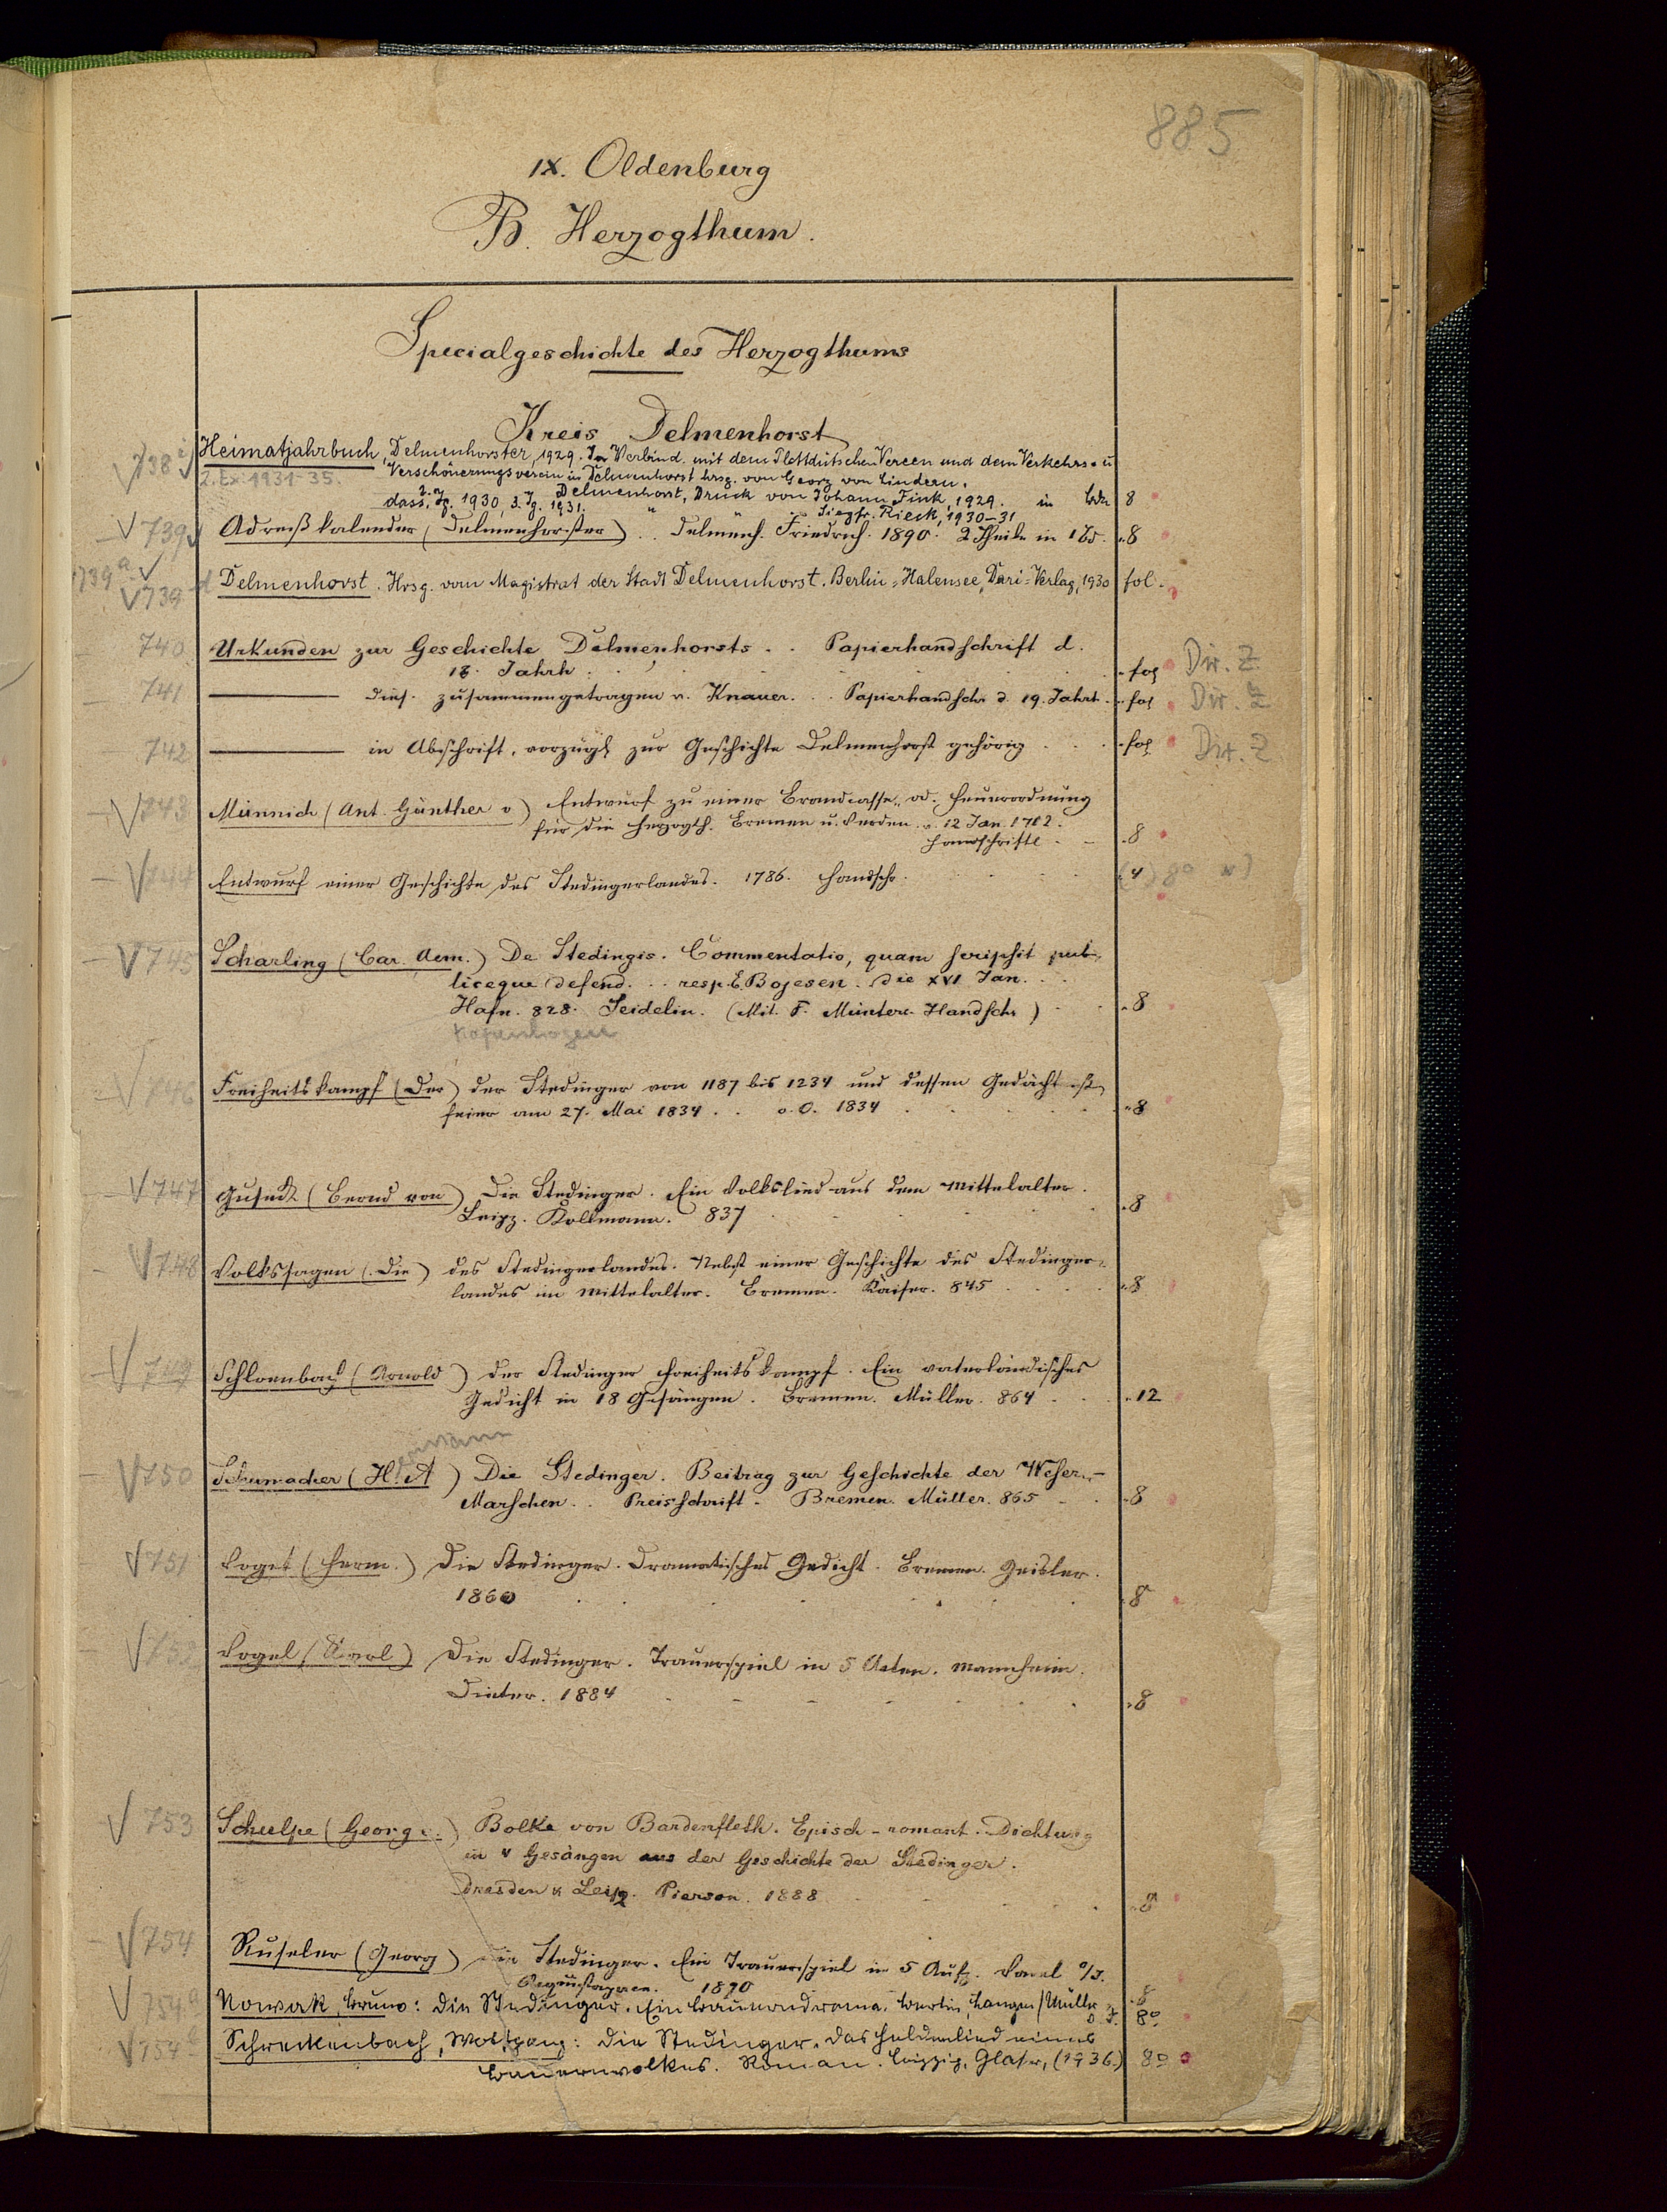 885
IX. Oldenburg
B. Herzogthum.
Specialgeschichte des Herzogthums
Kreis Delmenhorst
738 Heimatjahrbuch, Delmenhorster, 1929. In Verbind. mit dem Plattdütschen Vereen und dem Verkehrs- u
2. Ex. 1931-35. Verschönerungsverein in Delmenhorst hrsg. von Georg von Lindern.
Delmenhorst, Druck von Johann Fink, 1929. in Bdn 8
dass. 2. Jg. 1930, 3. Jg. 1931. " " Siegfr. Rieck, 1930-31
739 Adreßkalender (Delmenhorster) .. Delmenh. Friedrich. 1890. 2 Theile in 1 Bd. 8
739a
739d Delmenhorst. Hrsg. vom Magistrat der Stadt Delmenhorst. Berlin-Halensee, Dari-Verlag, 1930 fol.
740 Urkunden zur Geschichte Delmenhorsts .. Papierhandschrift d.
18. Jahrh. fol Dir. Z
741 ——— dies. zusammengetragen v. Knauer. .. Papierhandschr d. 19. Jahrh. fol Dir. Z
742 ——— in Abschrift, vorzügl. zur Geschichte Delmenhorst gehörig . . . fol Dir. Z
743 Münnich (Ant. Günther v) Entwurf zu einer Brandcasse, od. Feuerordnung
für die Herzogth. Bremen u. Verden. v. 12 Jan. 1702.
Handschriftl. 8
744 Entwurf einer Geschichte des Stedingerlandes. 1786. Handschr. (4) 8°
745 Scharling (Car. Aem.) De Stedingis. Commentatio, quam scripsit pub-
liceque defend. .. resp. E. Bojesen. die XVI Jan. . .
Hafn. 828. Seidelin. (Mit. F. Münters Handschr) 8
Kopenhagen
746 Freiheitskampf (Der) der Stedinger von 1187 bis 1234 und dessen Gedächtniß
feier am 27. Mai 1834. . . o. O. 1834 8
747 Guseck (Bernd von) Die Stedinger. Ein Volkslied aus dem Mittelalter.
Leipz. Kollmann. 837 8
748 Volkssagen (Die) des Stedingerlandes. Nebst einer Geschichte des Stedinger-
landes im Mittelalter. Bremen. Kaiser. 845 8
749 Schloenbach (Arnold) Der Stedinger Freiheitskampf. Ein vaterländisches
Gedicht in 18 Gesängen. Bremen. Müller. 864 12
750 Schumacher (H. A) Die Stedinger. Beitrag zur Geschichte der Weser-
Marschen. . Preisschrift. Bremen. Müller. 865 8
751 Voget (Herm.) Die Stedinger. Dramatisches Gedicht. Bremen. Geisler.
1860 8
752 Vogel (Karl) Die Stedinger. Trauerspiel in 5 Acten. Mannheim.
Dieter. 1884 8
753 Schulpe (Georg v.) Bolke von Bardenfleth. Episch-romant. Dichtung
in V Gesängen aus der Geschichte der Stedinger.
Dresden u Leipz. Pierson. 1888 8
754 Ruseler (Georg) Die Stedinger. Ein Trauerspiel in 5 Aufz. Varel a/J.
1890 8
754a Nowak, Bruno: Die Stedinger. Ein Bauerndrama. Berlin, Langen/Müller o. J. 8°
754b Schreckenbach, Wolfgang: Die Stedinger. Das Heldenlied eines
Bauernvolkes. Roman. Leipzig, Glaser, (1936.) 8°